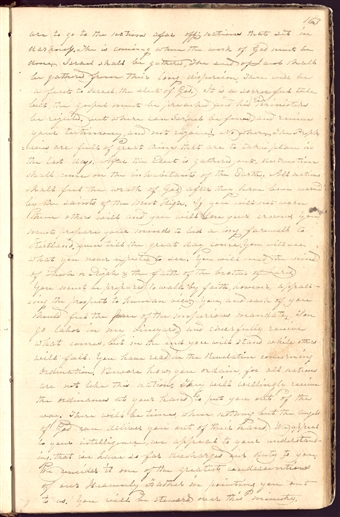 163
are to go to the nations afar off, nations that sit in
darkness. The is coming when the work of God must be
done. Israel shall be gathered, The seed of Jacob shall
be gathered from their long dispersion, There will be
a feast to Israel the elect of God. It is a sorrowful tale
but the gospel must be preached and his
be rejected, but where can Israel be found and receive
your testimony, and not rejoice. No where. The Proph
ecies are full of great things that are to take place in
the last days. After the Elect is gathered out, destruction
shall come on the inhabitants of the Earth, All nations
shall feel the wrath of God after they have been warned
by the saints of the Most High. If you will not warn
them others will and you will lose your crowns. You
must prepare your minds to bid a long farewell to
Kirtland, even till the great day come. You will see
what you never expected to see, You will need the mind
of Enoch or Elijah & the faith of the brother of Jared
You must be prepared to walk by faith however appal-
ling the prospect to human view; you, and each of you
should feel the force of the imperious mandate, Son
go labor in my vineyard and cheerfully receive
what comes, but in the end you will stand while others
will fall. You have read in the Revelation concerning
Ordination. Beware how you ordain for all nations
are not like this nation; They will willingly receive
the ordinances at your hand to put you out of the
way. There will be times when nothing but the angels
of God can deliver you out of their hands. We appeal
to your intelligence, we appeal to your understand-
ing, that we have so far discharged our duty to you.
We consider it one of the greatest condescentions
of our Heavenly Father in pointing you out
to us. You will be stewards over this ministry,